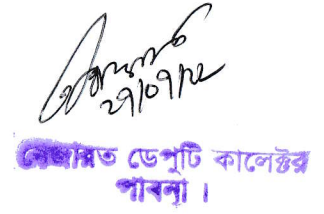 ২৭/০৭/২২
নেজারত ডেপুটি কালেক্টর
পাবনা ।